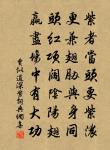 紫者當頭要紫濃
更兼翅肋與身同
頭紅項闊陰陽翅
贏盡場中有大功
賈似道深紫